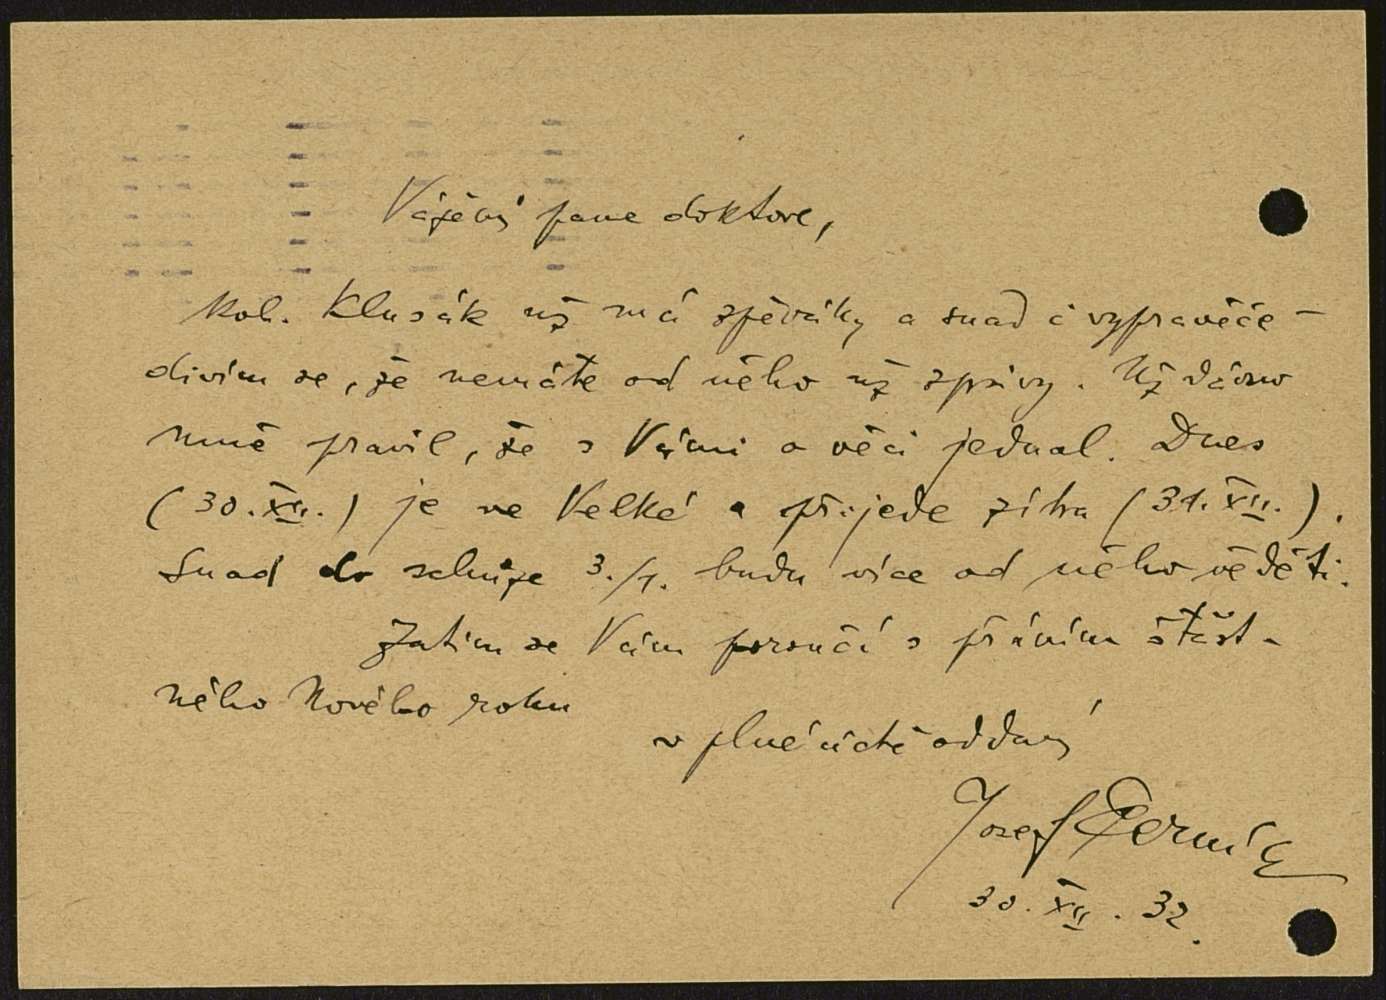 Vážený pane doktore,
kol. Klusák už má zpěváky a snad i vypravěče –
divím se, že nemáte od něho už zprávy. Už dávno
mně pravil, že s Vámi o věci jednal. Dnes
(30. XII.) je ve Velké a přijede zítra (31. XII.).
Snad do schůze 3./1. budu více od něho věděti.
Zatím se Vám poroučí s přáním šťast-
ného Nového roku
v plné úctě oddaný
Josef Černík
30. XII. 32.